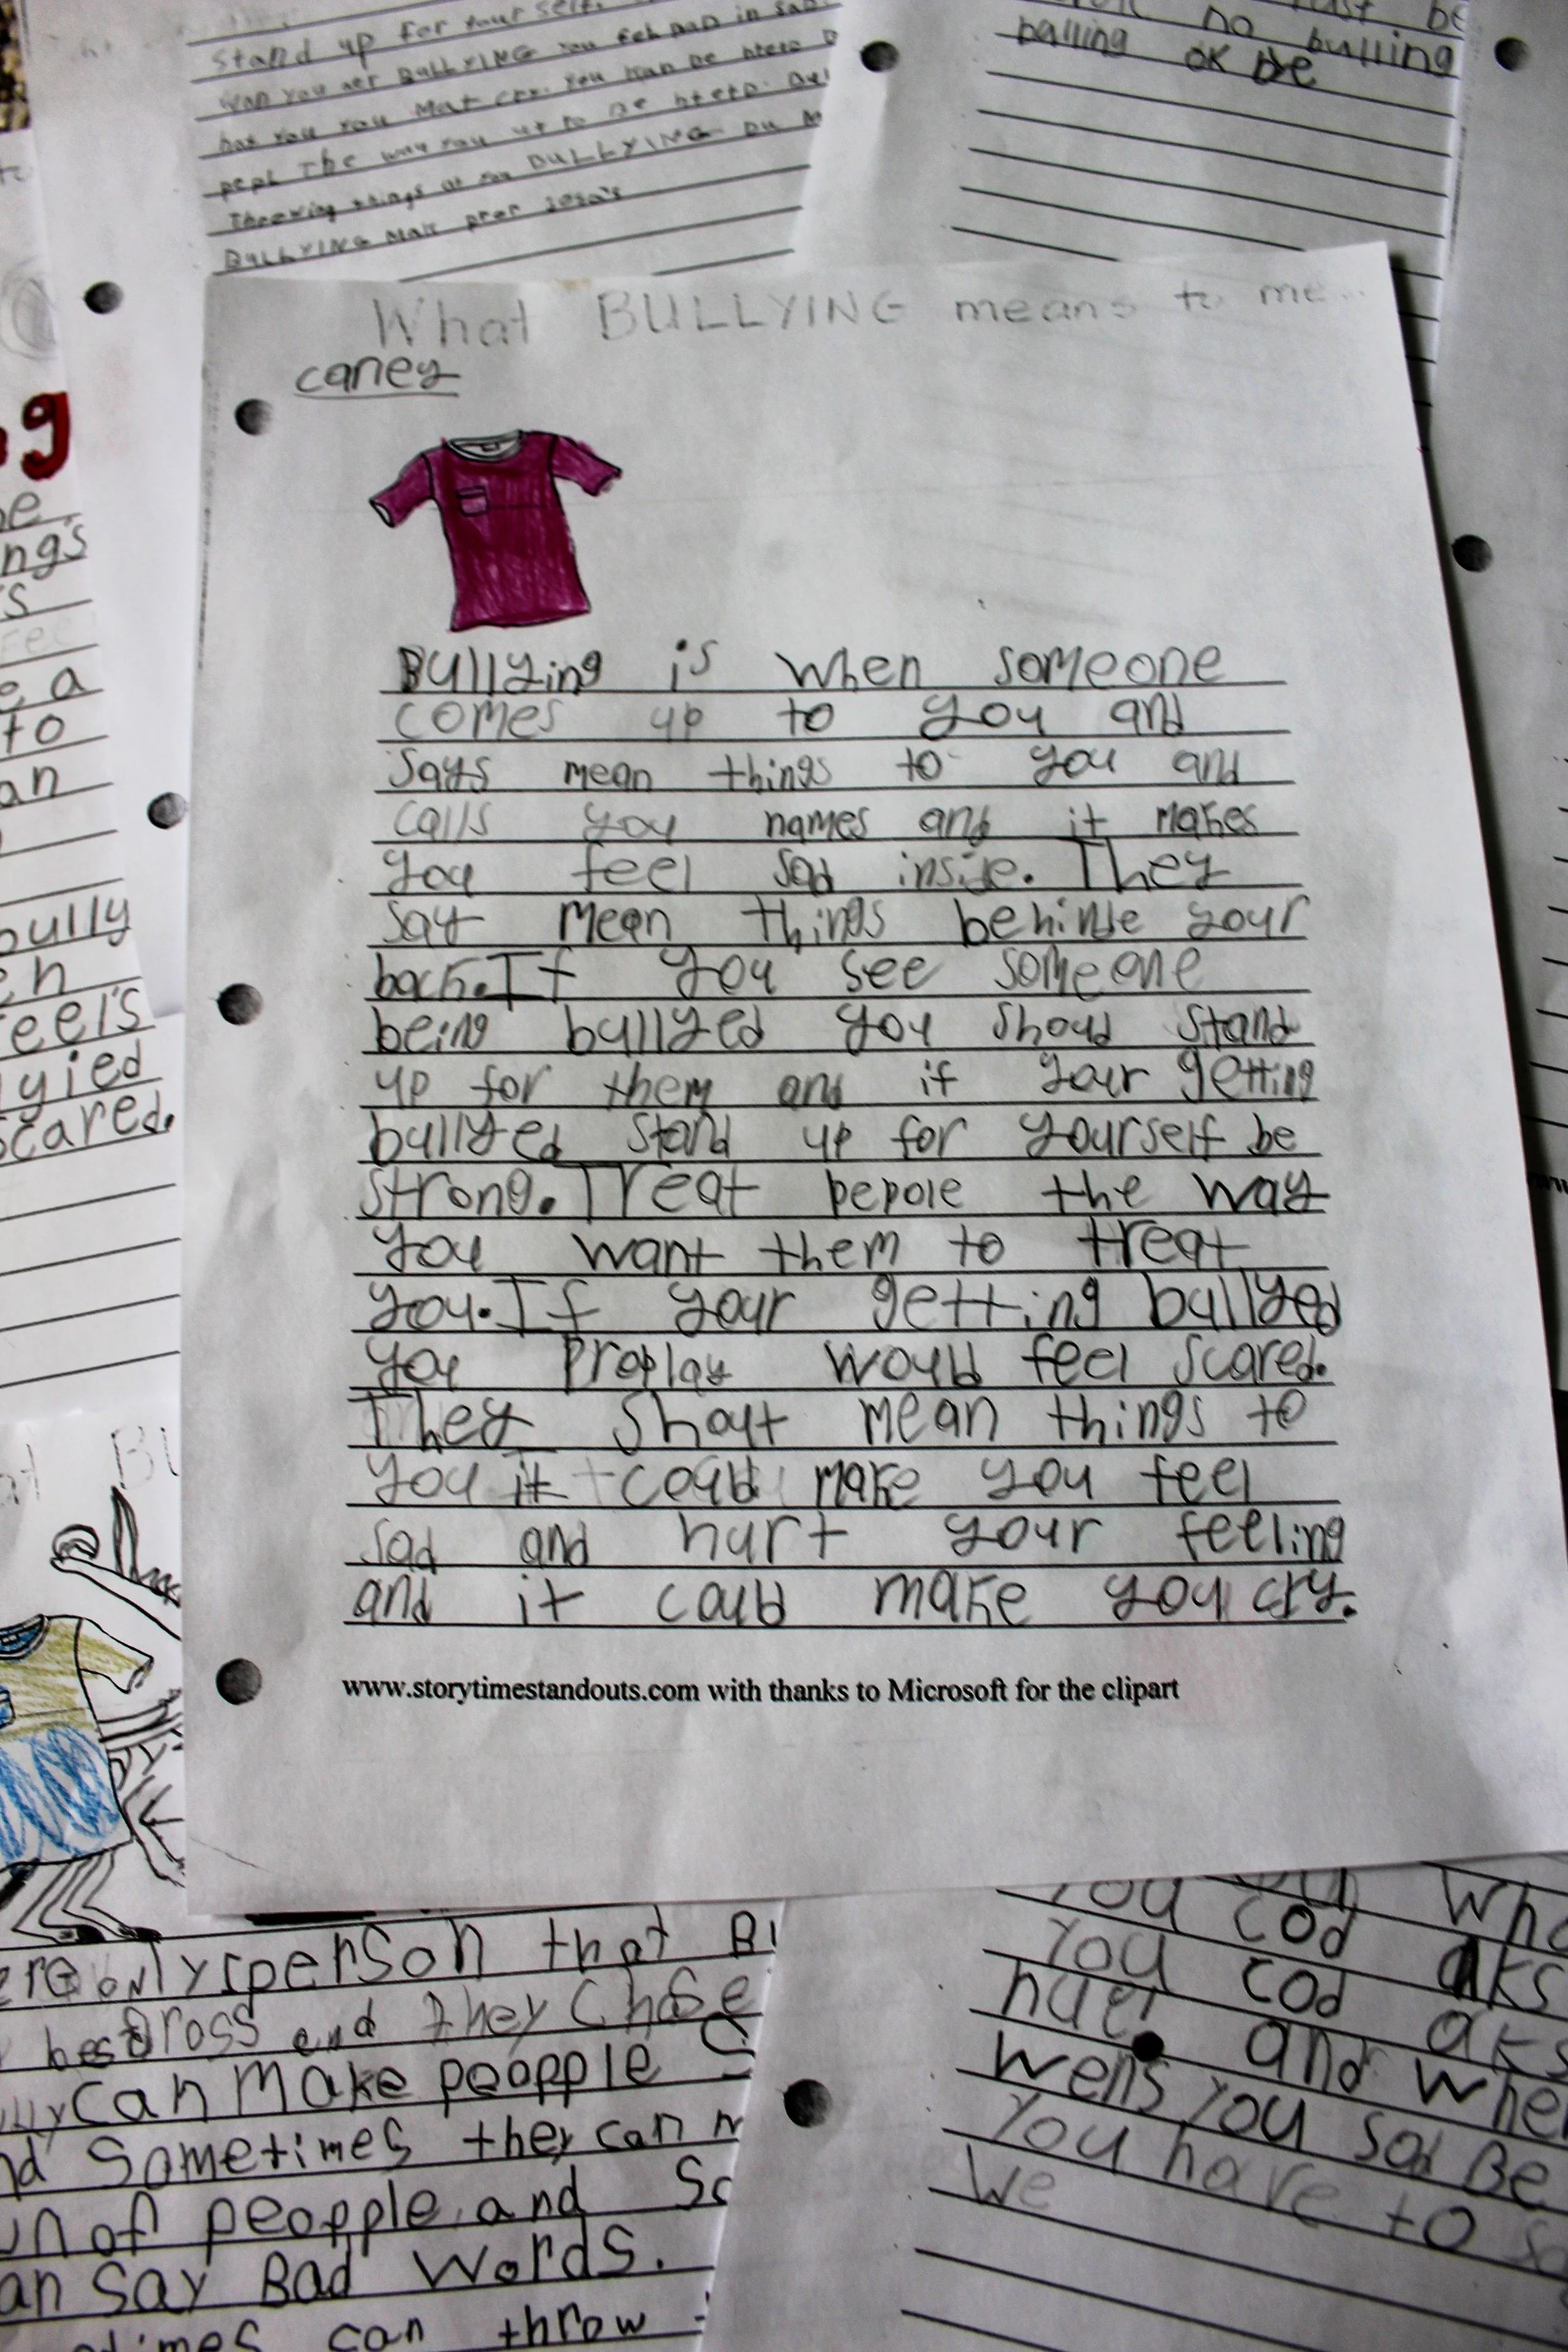 Stand up for your self.
BULLYING You
hat you you Mat cry. You
pepl The way you
Throwing things at you BULLYING
BULLYING Mak
no bulling
balling ok be
What BULLYING means to me..
caney
Bullying is when someone
comes up to you and
says mean things to you and
calls you names and it makes
you feel sad inside. They
say mean things behinde your
back. If you see someone
being bullyed you shoud stand
up for them and if your getting
bullyed stand up for yourself be
strong. Treat pepole the way
you want them to treat
you. If your getting bullyed
you proplay would feel scared.
They shout mean things to
you it could make you feel
sad and hurt your feeling
and it could make you cry.
www.storytimestandouts.com with thanks to Microsoft for the clipart
g
ngs
a
to
an
bully
eel's
yied
scared.
person that
and they
can make peopple
sometimes they can
of peopple and
say Bad words.
can throw
You cod aks
You cod aks
and when
wens you sad Be
You have to
We